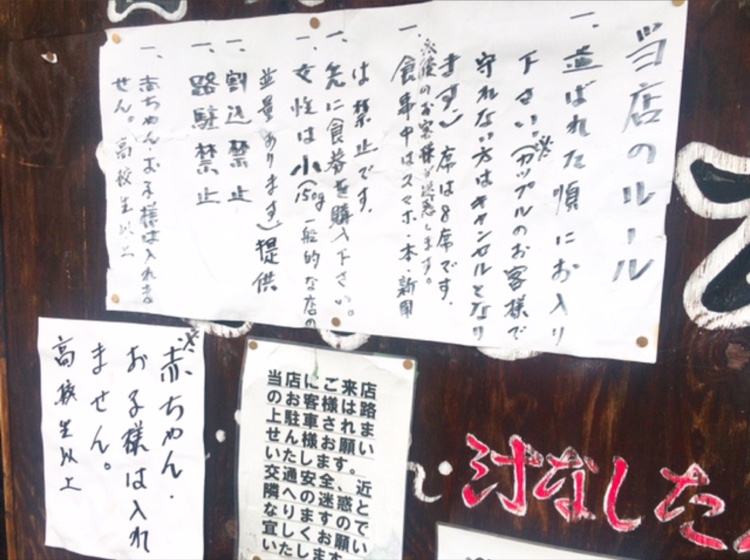 当店のルール
一、並ばれた順にお入り
下さい。(※カップルのお客様で
守れない方はキャンセルとなり
ます)席は8席です。
※後のお客様が迷惑します。
一、食事中はスマホ・本・新聞
は禁止です。
一、先に食券を購入下さい。
一、女性は小(150g 一般的な店の
並量あります)提供
一、割込禁止
一、路駐禁止
一、赤ちゃんお子様は入れま
せん。高校生以上
※赤ちゃん・
お子様は入れ
ません。
高校生以上
当店にご来店
のお客様は路
上駐車されま
せん様お願い
いたします。
交通安全、近
隣への迷惑と
なりますので
宜しくお願い
いたします
汁なした